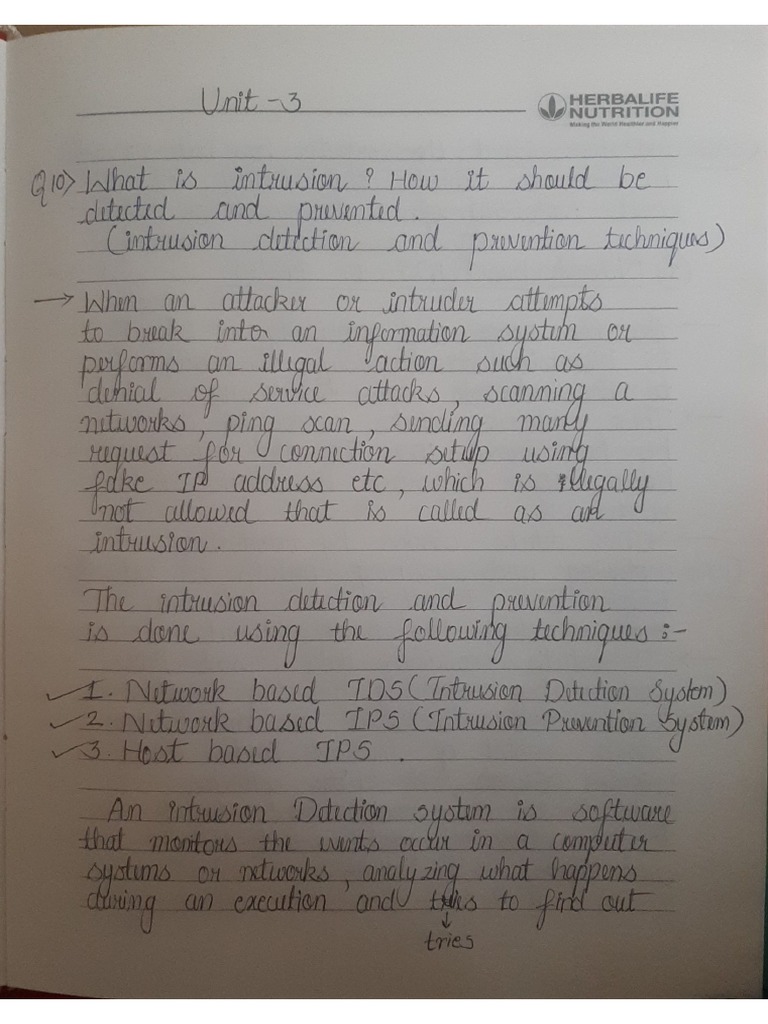 Unit - 3
HERBALIFE
NUTRITION
Making the World Healthier and Happier
Q10> What is intrusion? How it should be
detected and prevented.
(intrusion detection and prevention techniques)
→ When an attacker or intruder attempts
to break into an information system or
performs an illegal action such as
denial of service attacks, scanning a
networks, ping scan, sending many
request for connection setup using
fake IP address etc, which is illegally
not allowed that is called as an
intrusion.
The intrusion detection and prevention
is done using the following techniques :-
✓ 1. Network based IDS (Intrusion Detection System)
✓ 2. Network based IPS (Intrusion Prevention System)
✓ 3. Host based IPS.
An intrusion Detection system is software
that monitors the events occur in a computer
systems or networks, analyzing what happens
during an execution and tries to find out
↓
tries